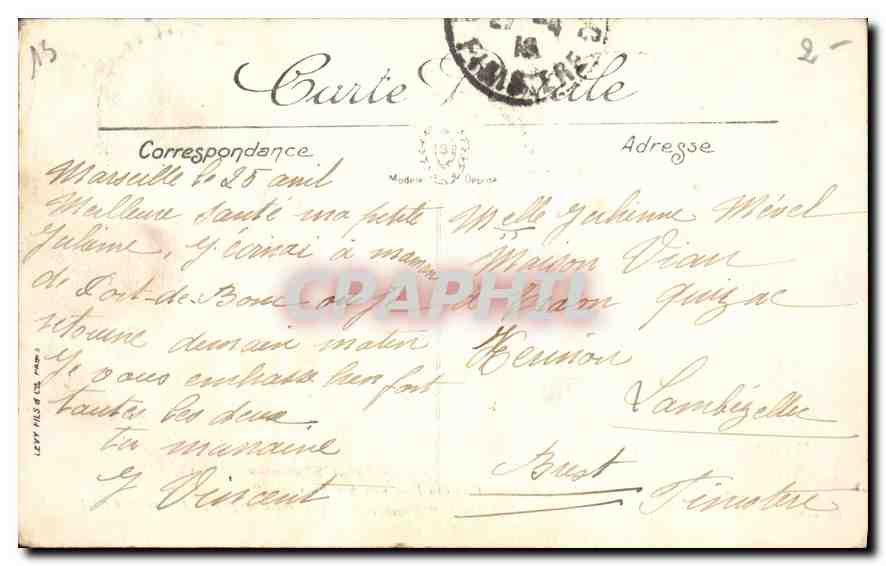 13
2-
27 -4
18
FINISTERE
Carte Postale
Correspondance
Adresse
Modèle Déposé
Marseille le 25 avril
Meilleure santé ma petite
j'écrirai à maman
de Port-de-Bouc où je
retourne demain matin
Je vous embrasse bien fort
toutes les deux
ta marraine
J Vincent
Melle Julienne Mével
Maison Vian
Quizac
Kerinou
Lambézellec
Brest
Finistère
LEVY FILS & Co. PARIS
CPAPHIL